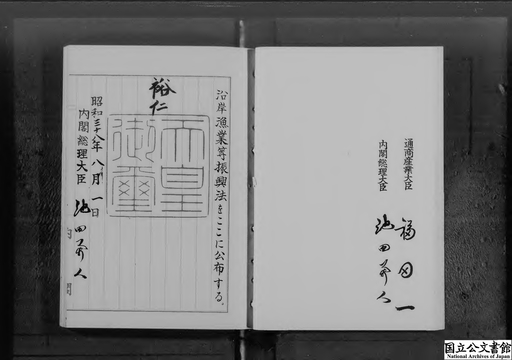 通商産業大臣
福田一
内閣総理大臣
池田勇人
沿岸漁業等振興法をここに公布する。
裕仁
天皇
御璽
昭和三十八年八月一日
内閣総理大臣
池田勇人
内閣
国立公文書館
National Archives of Japan